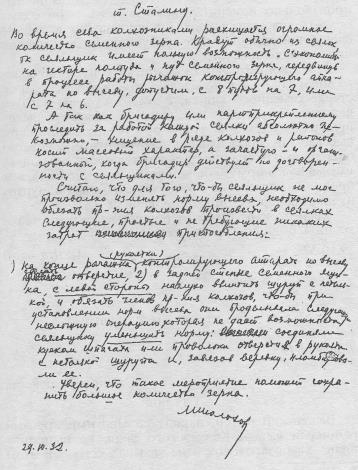 т. Сталину.
Во время сева колхозниками расхищается огромное
количество семенного зерна. Крадут обычно из сеялок
сеяльщик имеет полную возможность сэкономить
на гектаре полтора - 2 пуда семенного зерна, передвинув
в процессе работы рычажок контролирующего аппа-
рата по высеву, допустим, с 8 пудов на 7, или
с 7 на 6.
А так как бригадиру или партприкрепленному
проследить за работой каждой сеялки абсолютно не-
возможно - хищение в ряде колхозов и районов
носит массовый характер, а зачастую - и органи-
зованный, когда бригадир действует по договорен-
ности с сеяльщиками.
Считаю, что для того, что-бы сеяльщик не мог
произвольно изменять норму высева, необходимо
обязать пр-ния колхозов произвести в сеялках
следующие, простые и не требующие никаких
затрат приспособления:
(рукоятки)
1) на конце рычажка контролирующего аппарата по высеву,
отверстие 2) в задней стенке семенного ящи-
ка, с левой стороны, наглухо ввинтить шуруп с петель-
кой, и обязать членов пр-ния колхозов, что-бы при
установлении норм высева они проделывали следую
несложную операцию, которая не дает возможности
сеяльщику уменьшать норму: соединяли
куском шпагата или проволоки отверстие в рукоятке
с петелькой шурупа и, завязав веревку, пломбирова-
ли ее.
Уверен, что такое мероприятие поможет сохра-
нить большое количество зерна.
М. Шолохов
29.10.32